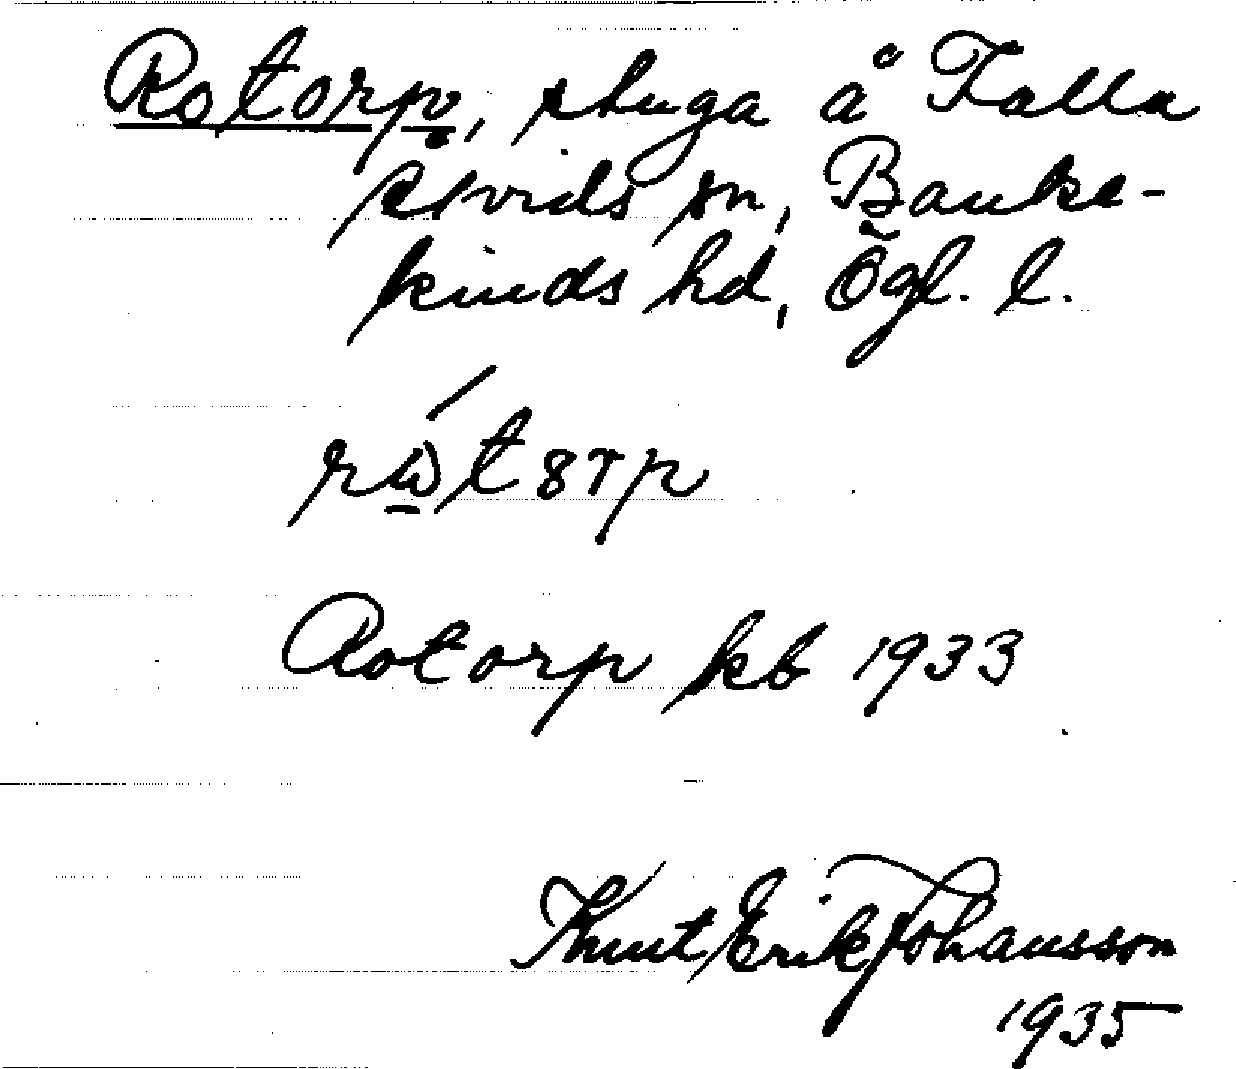 Rotorp, stuga å Falla
Örvids sn, Banke-
kinds hd, Ögl. l.
Rotorp kb 1933
Knut Erik Johansson
1935